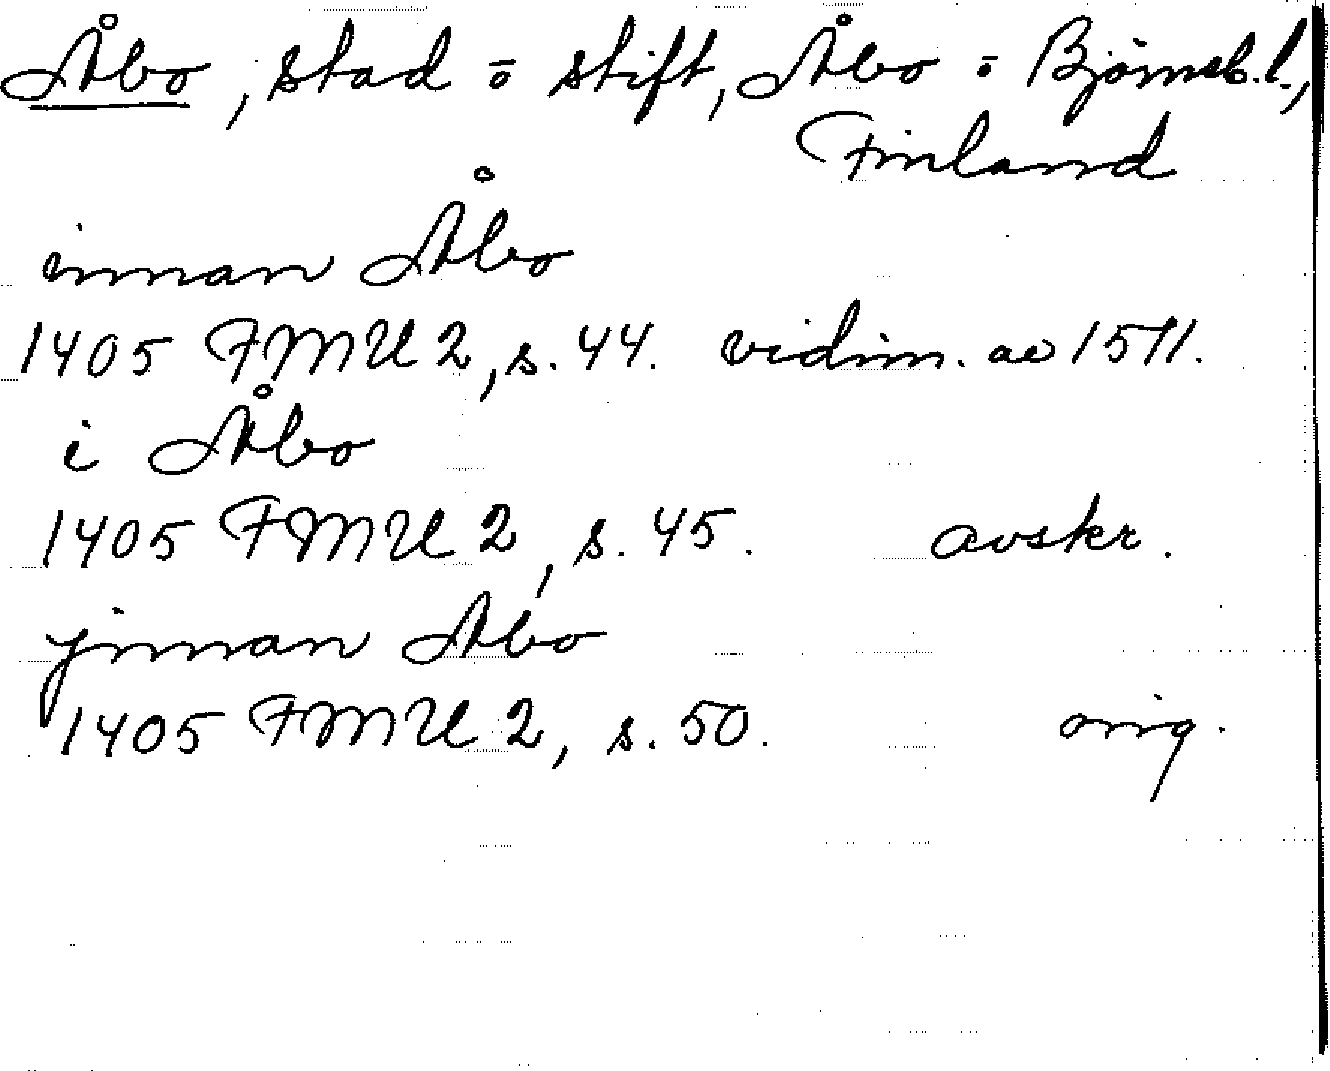 Åbo, stad o stift, Åbo o Björneb.l.,
Finland
innan Åbo
1405 FMU 2, s. 44. vidim. av 1511.
i Åbo
1405 FMU 2, s. 45. avskr.
jnnan Abo
1405 FMU 2, s. 50. orig.